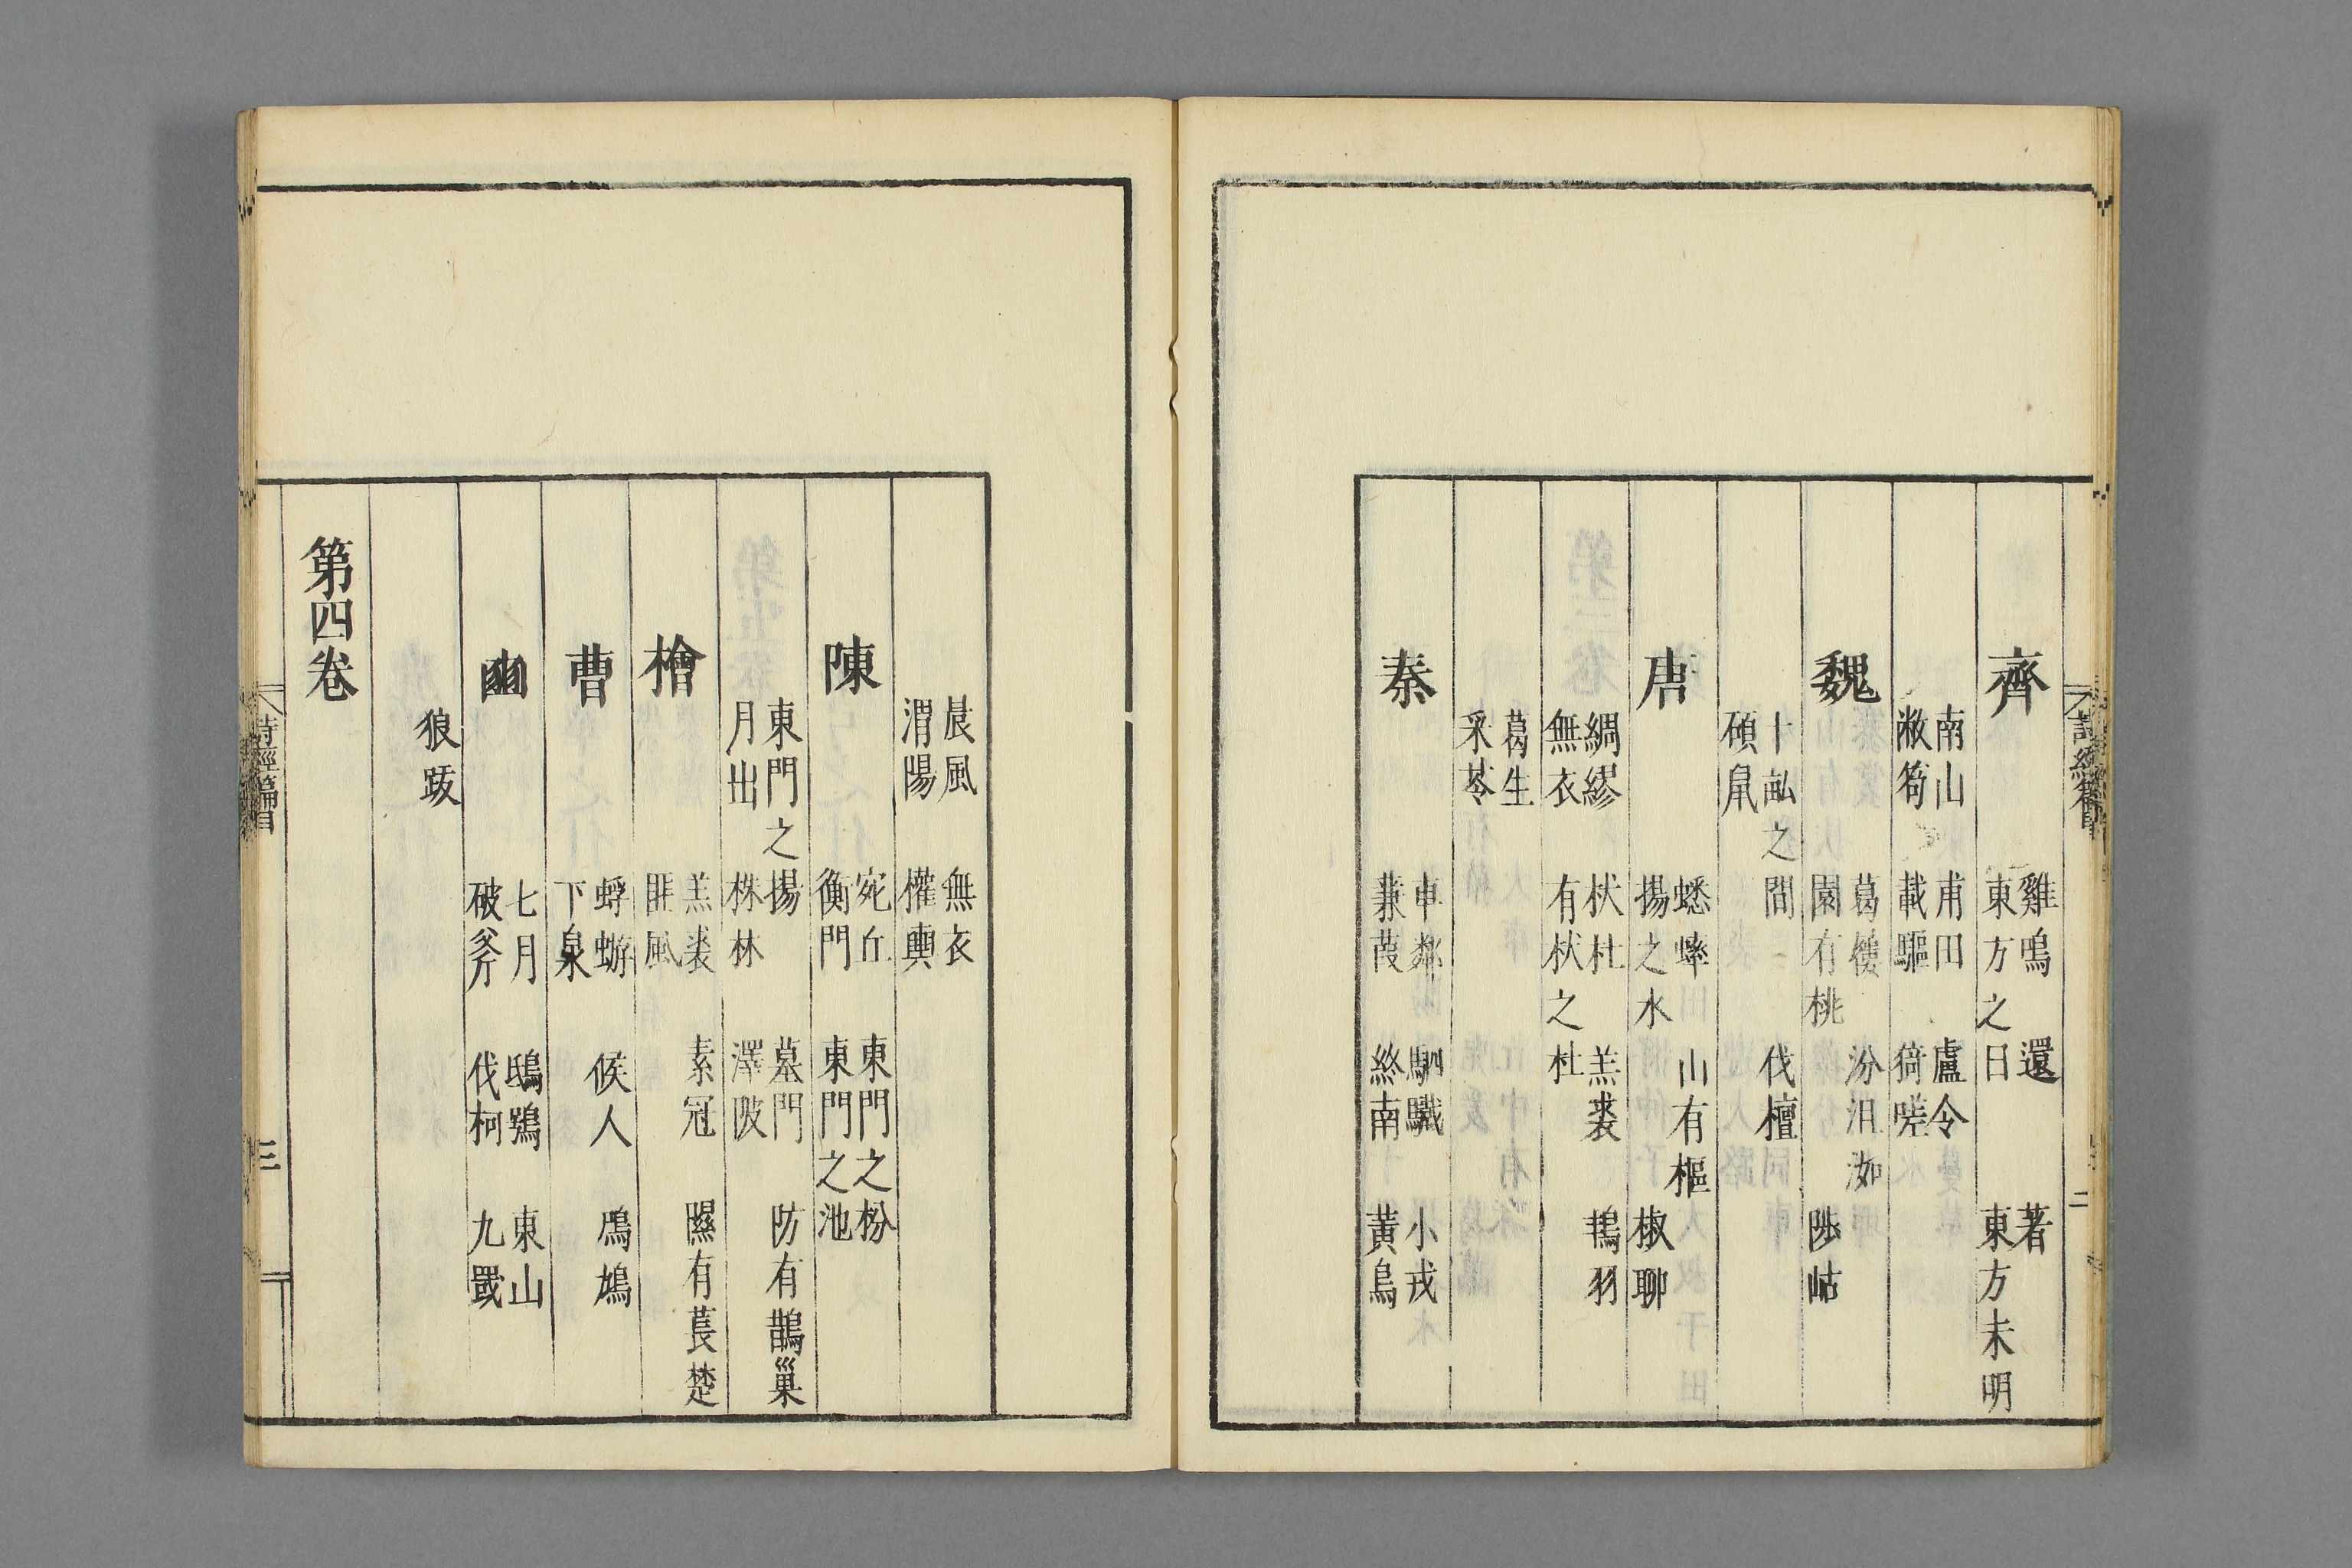 齊
雞鳴 還 著
東方之日 東方未明
南山 甫田 盧令
敝笱 載驅 猗嗟
魏
葛屨 汾沮洳 陟岵
園有桃
十畝之間 伐檀
碩鼠
唐
蟋蟀 山有樞 椒聊
揚之水
綢繆 杕杜 羔裘 鴇羽
無衣 有杕之杜
葛生
采苓
秦
車鄰 駟驖 小戎
蒹葭 終南 黃鳥
二
晨風 無衣
渭陽 權輿
陳
宛丘 東門之枌
衡門 東門之池
東門之楊 墓門 防有鵲巢
月出 株林 澤陂
檜
羔裘 素冠 隰有萇楚
匪風
曹
蜉蝣 候人 鳲鳩
下泉
豳
七月 鴟鴞 東山
破斧 伐柯 九罭
狼跋
第四卷
詩經篇目
三